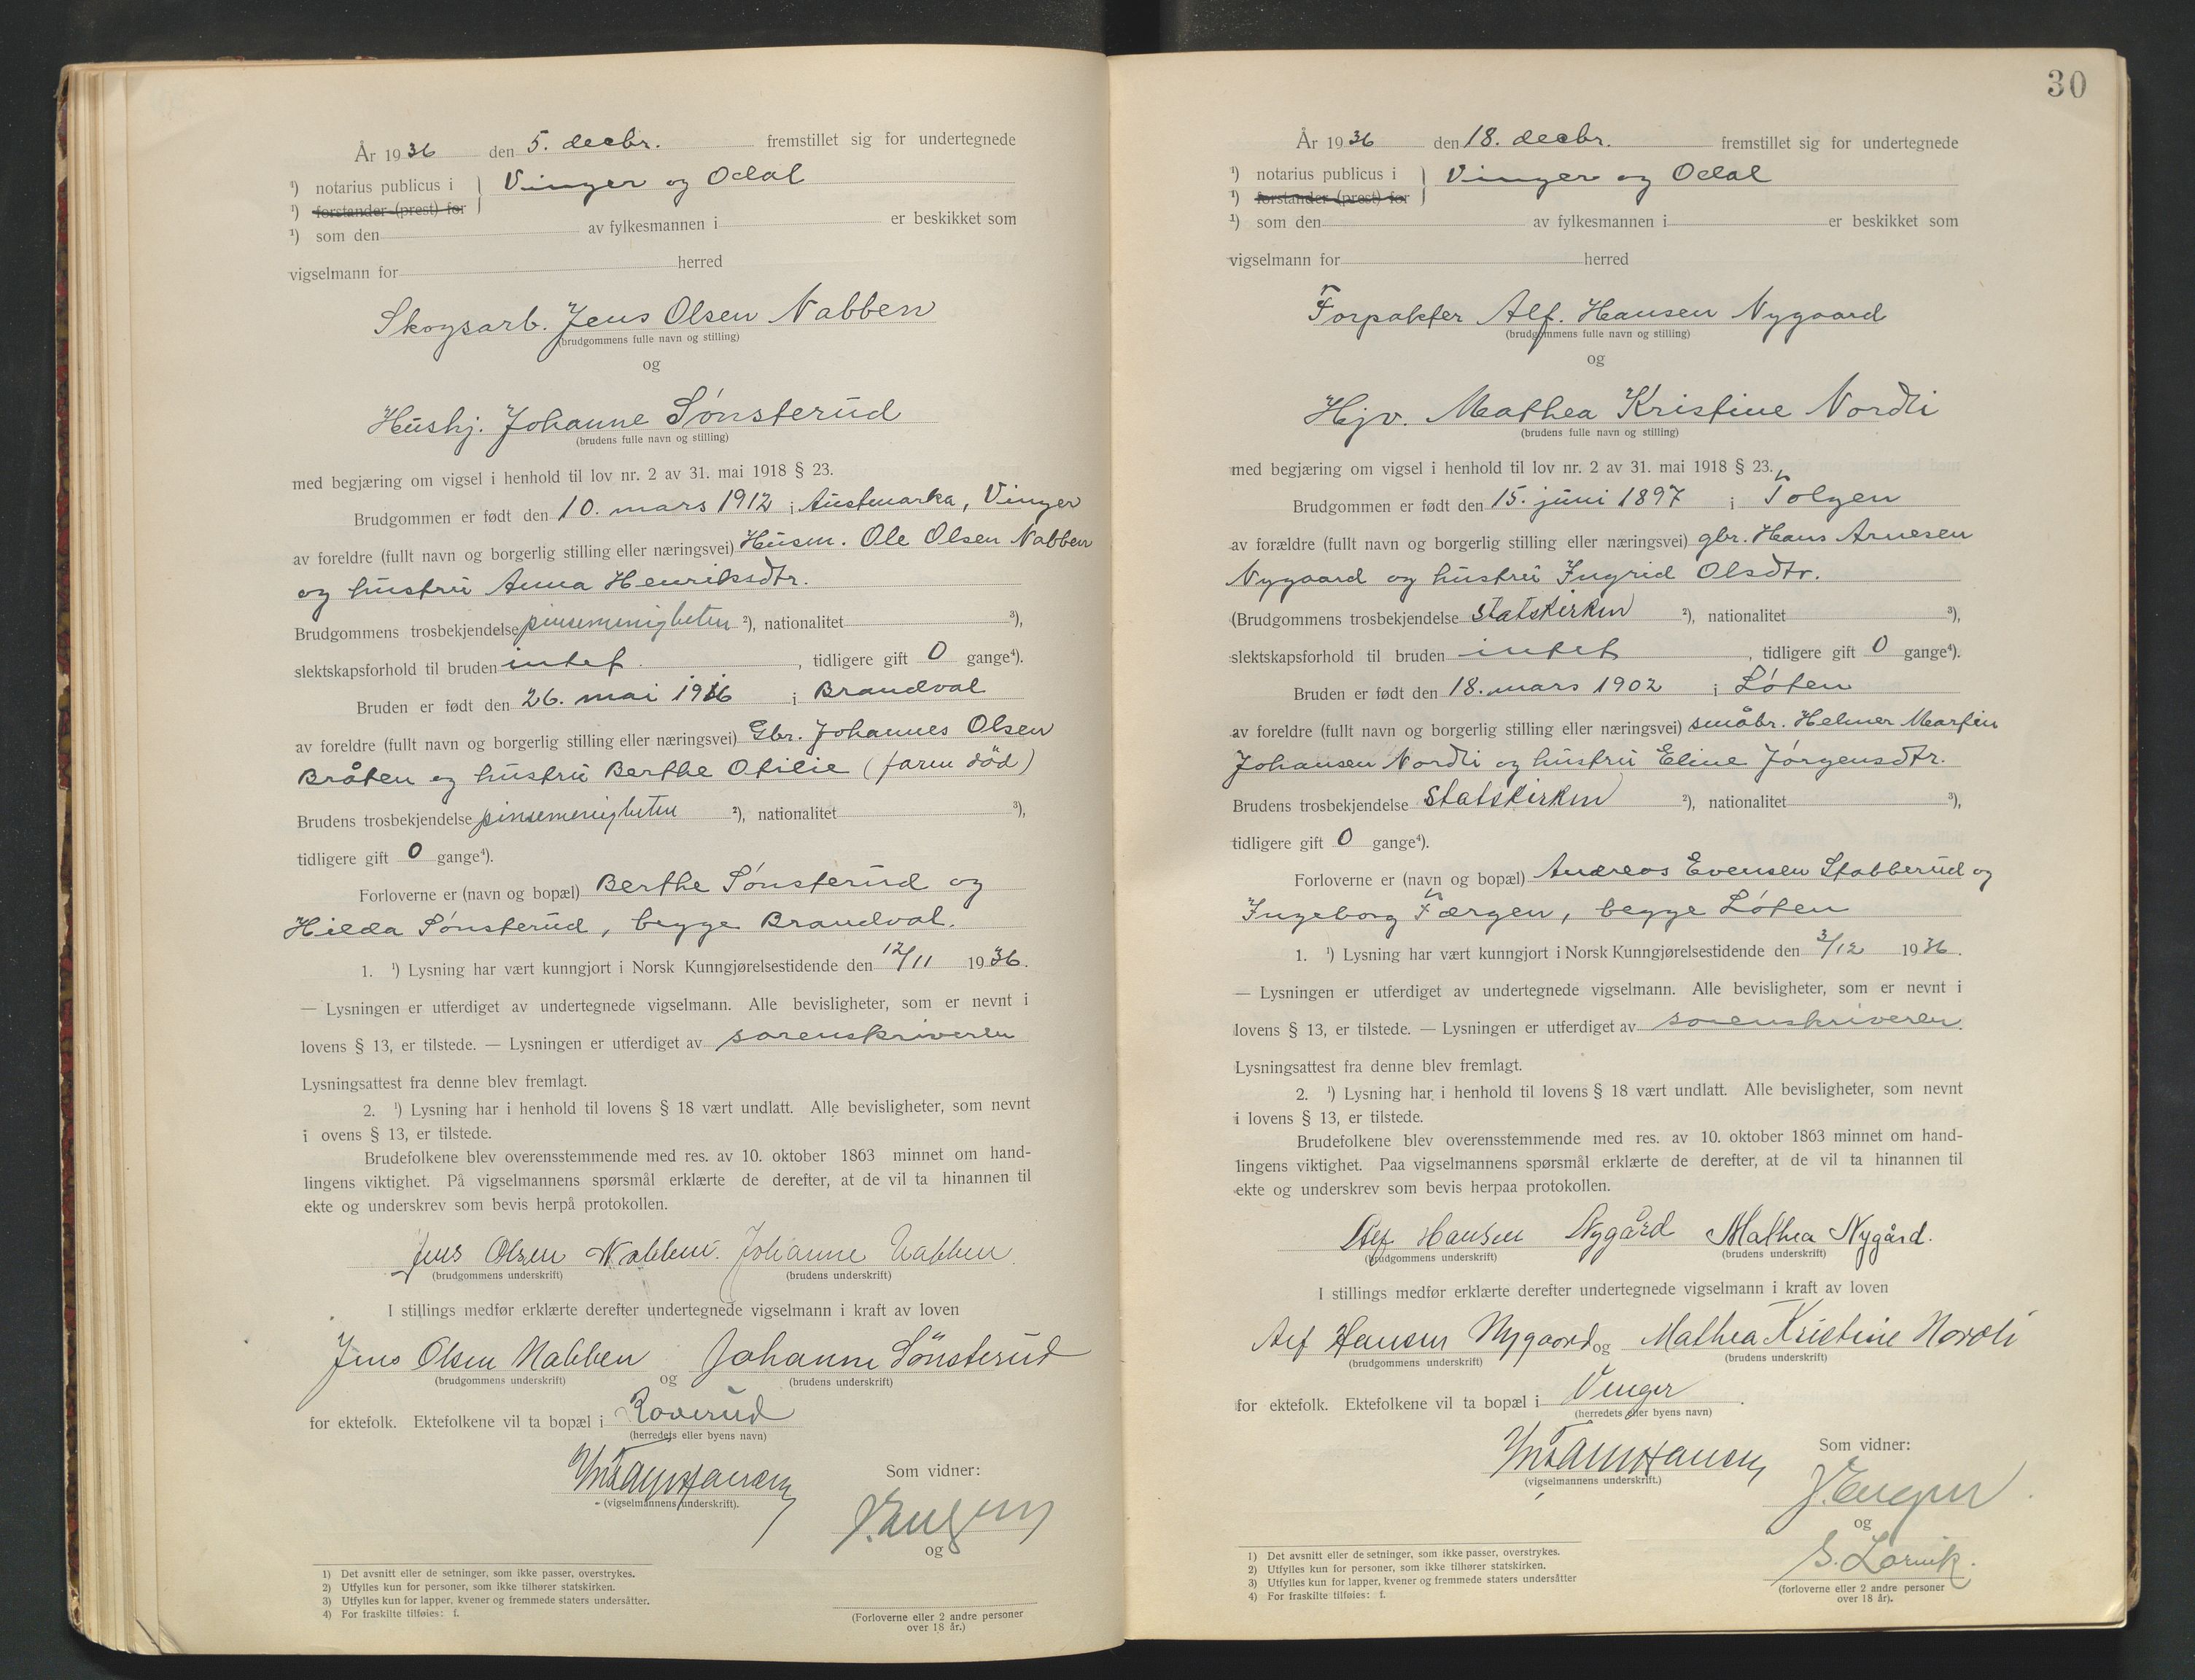 År 1936 den 5. decbr. fremstillet sig for undertegnede
¹) notarius publicus i } Vinger og Odal
¹) forstander (prest) for
¹) som den av fylkesmannen i er beskikket som
vigselmann for herred
Skogsarb. Jens Olsen Nabben
(brudgommens fulle navn og stilling)
og
Hushj. Johanne Sønsterud
(brudens fulle navn og stilling)
med begjæring om vigsel i henhold til lov nr. 2 av 31. mai 1918 § 23.
Brudgommen er født den 10. mars 1912 i Austmarka, Vinger
av foreldre (fullt navn og borgerlig stilling eller næringsvei) Husm. Ole Olsen Nabben
og hustru Anna Henriksdtr.
Brudgommens trosbekjendelse pinsemenigheten ²), nationalitet ³),
slektskapsforhold til bruden intet , tidligere gift 0 gange⁴).
Bruden er født den 26. mai 1916 i Brandval
av foreldre (fullt navn og borgerlig stilling eller næringsvei) Gbr. Johannes Olsen
Bråten og hustru Berthe Otilie (faren död)
Brudens trosbekjendelse pinsemenigheten ²), nationalitet ³),
tidligere gift 0 gange⁴).
Forloverne er (navn og bopæl) Berthe Sønsterud og
Hilda Sønsterud, begge Brandval.
1. ¹) Lysning har vært kunngjort i Norsk Kunngjørelsestidende den 12/11 1936.
— Lysningen er utferdiget av undertegnede vigselmann. Alle bevisligheter, som er nevnt i
lovens § 13, er tilstede. — Lysningen er utferdiget av sorenskriveren
Lysningsattest fra denne blev fremlagt.
2. ¹) Lysning har i henhold til lovens § 18 vært undlatt. Alle bevisligheter, som nevnt
i ovens § 13, er tilstede.
Brudefolkene blev overensstemmende med res. av 10. oktober 1863 minnet om hand-
lingens viktighet. På vigselmannens spørsmål erklærte de derefter, at de vil ta hinannen til
ekte og underskrev som bevis herpå protokollen.
Jens Olsen Nabben. Johanne Nabben.
(brudgommens underskrift) (brudens underskrift)
I stillings medfør erklærte derefter undertegnede vigselmann i kraft av loven
Jens Olsen Nabben og Johanne Sönsterud
(brudgommens underskrift) (brudens underskrift)
for ektefolk. Ektefolkene vil ta bopæl i Roverud
(herredets eller byens navn)
(vigselmannens underskrift).
Som vidner:
og
1) Det avsnitt eller de setninger, som ikke passer, overstrykes.
2) Utfylles kun for personer, som ikke tilhører statskirken.
3) Utfylles kun for lapper, kvener og fremmede staters undersåtter.
4) For fraskilte tilføies: f.
(Forloverne eller 2 andre personer
over 18 år.)
30
År 1936 den 18. decbr. fremstillet sig for undertegnede
¹) notarius publicus i } Vinger og Odal
¹) forstander (prest) for
¹) som den av fylkesmannen i er beskikket som
vigselmann for herred
Forpakter Alf. Hansen Nygaard
(brudgommens fulle navn og stilling)
og
Hjv. Mathea Kristine Nordli
(brudens fulle navn og stilling)
med begjæring om vigsel i henhold til lov nr. 2 av 31. mai 1918 § 23.
Brudgommen er født den 15. juni 1897 i Tolgen
av forældre (fullt navn og borgerlig stilling eller næringsvei) gbr. Hans Arnesen
Nygaard og hustru Ingrid Olsdtr.
(Brudgommens trosbekjendelse statskirken ²), nationalitet ³),
slektskapsforhold til bruden intet , tidligere gift 0 gange⁴).
Bruden er født den 18. mars 1902 i Løten
av foreldre (fullt navn og borgerlig stilling eller næringsvei) småbr. Helmer Martin
Johansen Nordli og hustru Eline Jørgensdtr.
Brudens trosbekjendelse statskirken ²), nationalitet ³),
tidligere gift 0 gange⁴).
Forloverne er (navn og bopæl) Andreas Evensen Stabberud og
Ingeborg Færgen, begge Løten
1. ¹) Lysning har vært kunngjort i Norsk Kunngjørelsestidende den 3/12 1936.
— Lysningen er utferdiget av undertegnede vigselmann. Alle bevisligheter, som er nevnt i
lovens § 13, er tilstede. — Lysningen er utferdiget av sorenskriveren.
Lysningsattest fra denne blev fremlagt.
2. ¹) Lysning har i henhold til lovens § 18 vært undlatt. Alle bevisligheter, som nevnt
i lovens § 13, er tilstede.
Brudefolkene blev overensstemmende med res. av 10. oktober 1863 minnet om hand-
lingens viktighet. Paa vigselmannens spørsmål erklærte de derefter, at de vil ta hinannen til
ekte og underskrev som bevis herpaa protokollen.
Alf Hansen Nygård Mathea Nygård.
(brudgommens underskrift) (brudens underskrift)
I stillings medfør erklærte derefter undertegnede vigselmann i kraft av loven
Alf Hansen Nygaard og Mathea Kristine Nordli
(brudgommens underskrift) (brudens underskrift)
for ektefolk. Ektefolkene vil ta bopæl i Vinger
(herredets eller byens navn)
(vigselmannens underskrift.)
Som vidner:
og
(forloverne eller 2 andre personer
over 18 år).
1) Det avsnitt eller de setninger, som ikke passer, overstrykes.
2) Utfylles kun for personer, som ikke tilhører statskirken.
3) Utfylles kun for lapper, kvener og fremmede staters undersåtter
4) For fraskilte tilføies: f.